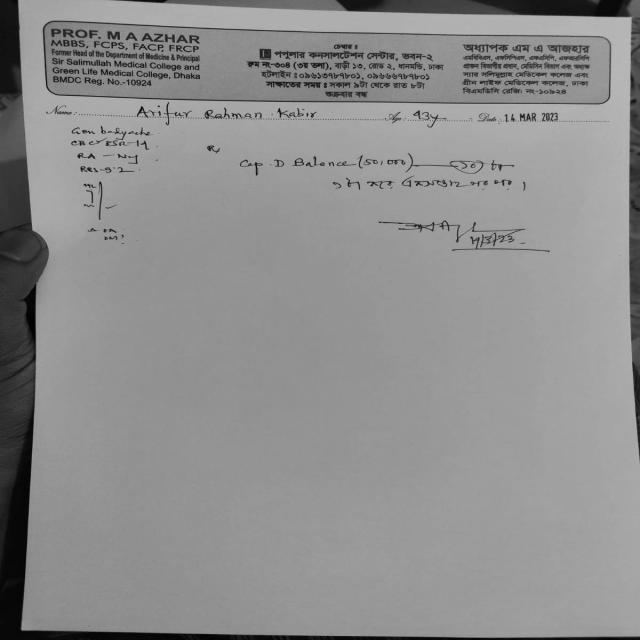 PROF. M A AZHAR
MBBS, FCPS, FACP, FRCP
Former Head of the Department of Medicine & Principal
Sir Salimullah Medical College and
Green Life Medical College, Dhaka
BMDC Reg. No.-10924
চেম্বার :
পপুলার কনসালটেশন সেন্টার, ভবন-২
রুম নং-৩০৪ (৩য় তলা), বাড়ী ১৩, রোড ২, ধানমন্ডি, ঢাকা
হটলাইন : ০৯৬১৩৭৮৭৮০১, ০৯৬৬৬৭৮৭৮০১
সাক্ষাতের সময় : সকাল ৯টা থেকে রাত ৮টা
শুক্রবার বন্ধ
অধ্যাপক এম এ আজহার
এমবিবিএস, এফসিপিএস, এফএসিপি, এফআরসিপি
প্রাক্তন বিভাগীয় প্রধান, মেডিসিন বিভাগ এবং অধ্যক্ষ
স্যার সলিমুল্লাহ মেডিকেল কলেজ এবং
গ্রীন লাইফ মেডিকেল কলেজ, ঢাকা
বিএমডিসি রেজি: নং-১০৯২৪
Name: Arifur Rahman Kabir Age 43y Date 14 MAR 2023
CBC ESR-14
RA
RBS-9.2
Rx
Cap. D Balance (50,000)